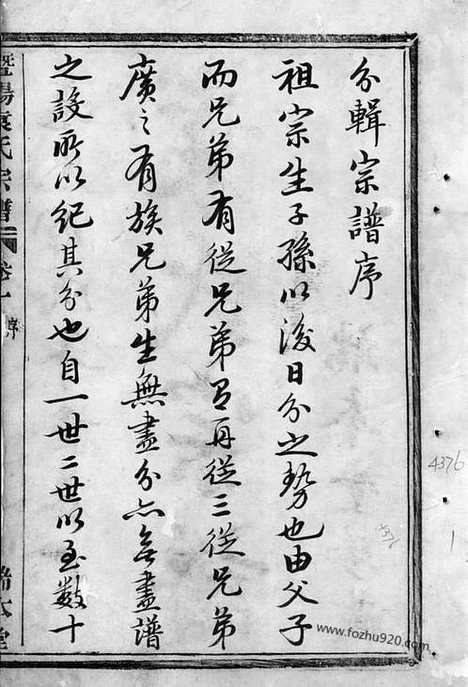 分輯宗譜序
祖宗生子孫以後日分之勢也由父子
而兄弟有從兄弟有再從三從兄弟
廣之有族兄弟生無盡分亦無盡譜
之設所以紀其分也自一世二世以至數十
暨陽袁氏宗譜 卷一 序
www.fozhu920.com
4376
1